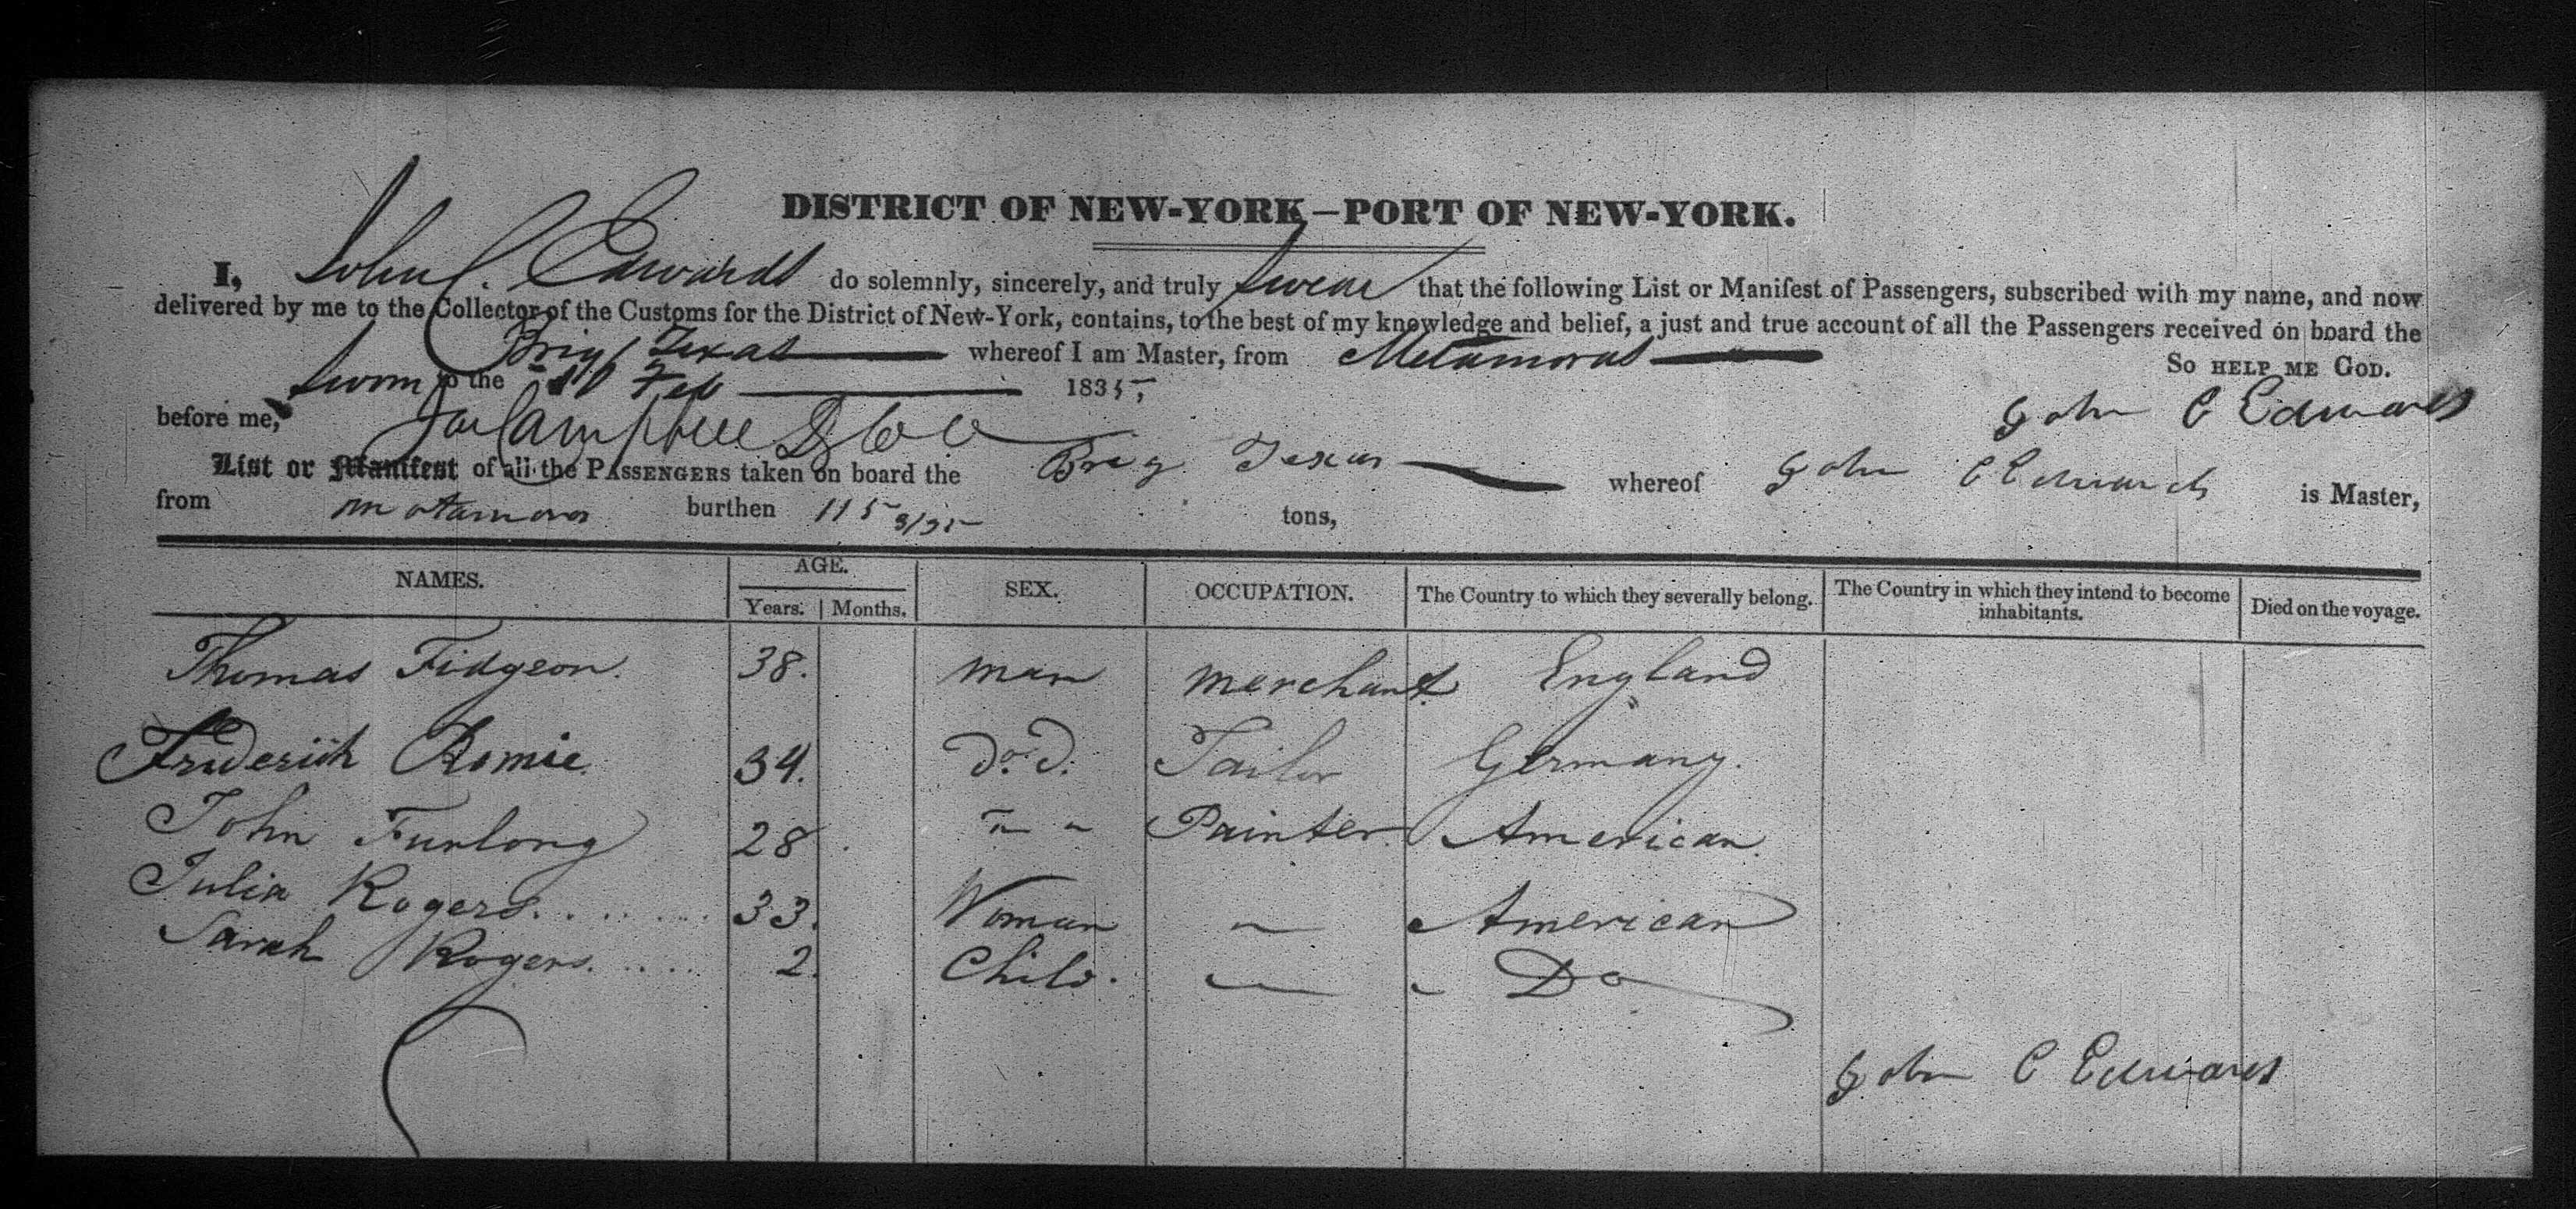 DISTRICT OF NEW-YORK—PORT OF NEW-YORK.
I, John C. Edwards do solemnly, sincerely, and truly swear that the following List or Manifest of Passengers, subscribed with my name, and now
delivered by me to the Collector of the Customs for the District of New-York, contains, to the best of my knowledge and belief, a just and true account of all the Passengers received on board the
Brig Texas whereof I am Master, from Metamoras So HELP ME GOD.
Sworn to the Feb 1835,
before me, Campbell John C Edwards
List or Manifest of all the PASSENGERS taken on board the Brig Texas whereof John C Edwards is Master,
from Matamoras burthen 115 tons,
NAMES. AGE. SEX. OCCUPATION. The Country to which they severally belong. The Country in which they intend to become inhabitants. Died on the voyage.
Years. Months.
Thomas Fidgeon. 38. man merchant England
Frederick Romie. 34. do. Tailor Germany.
John Furlong 28 " " Painter. American.
Julia Rogers. 33. Woman " American
Sarah Rogers. 2. Child. " " Do
John C Edwards